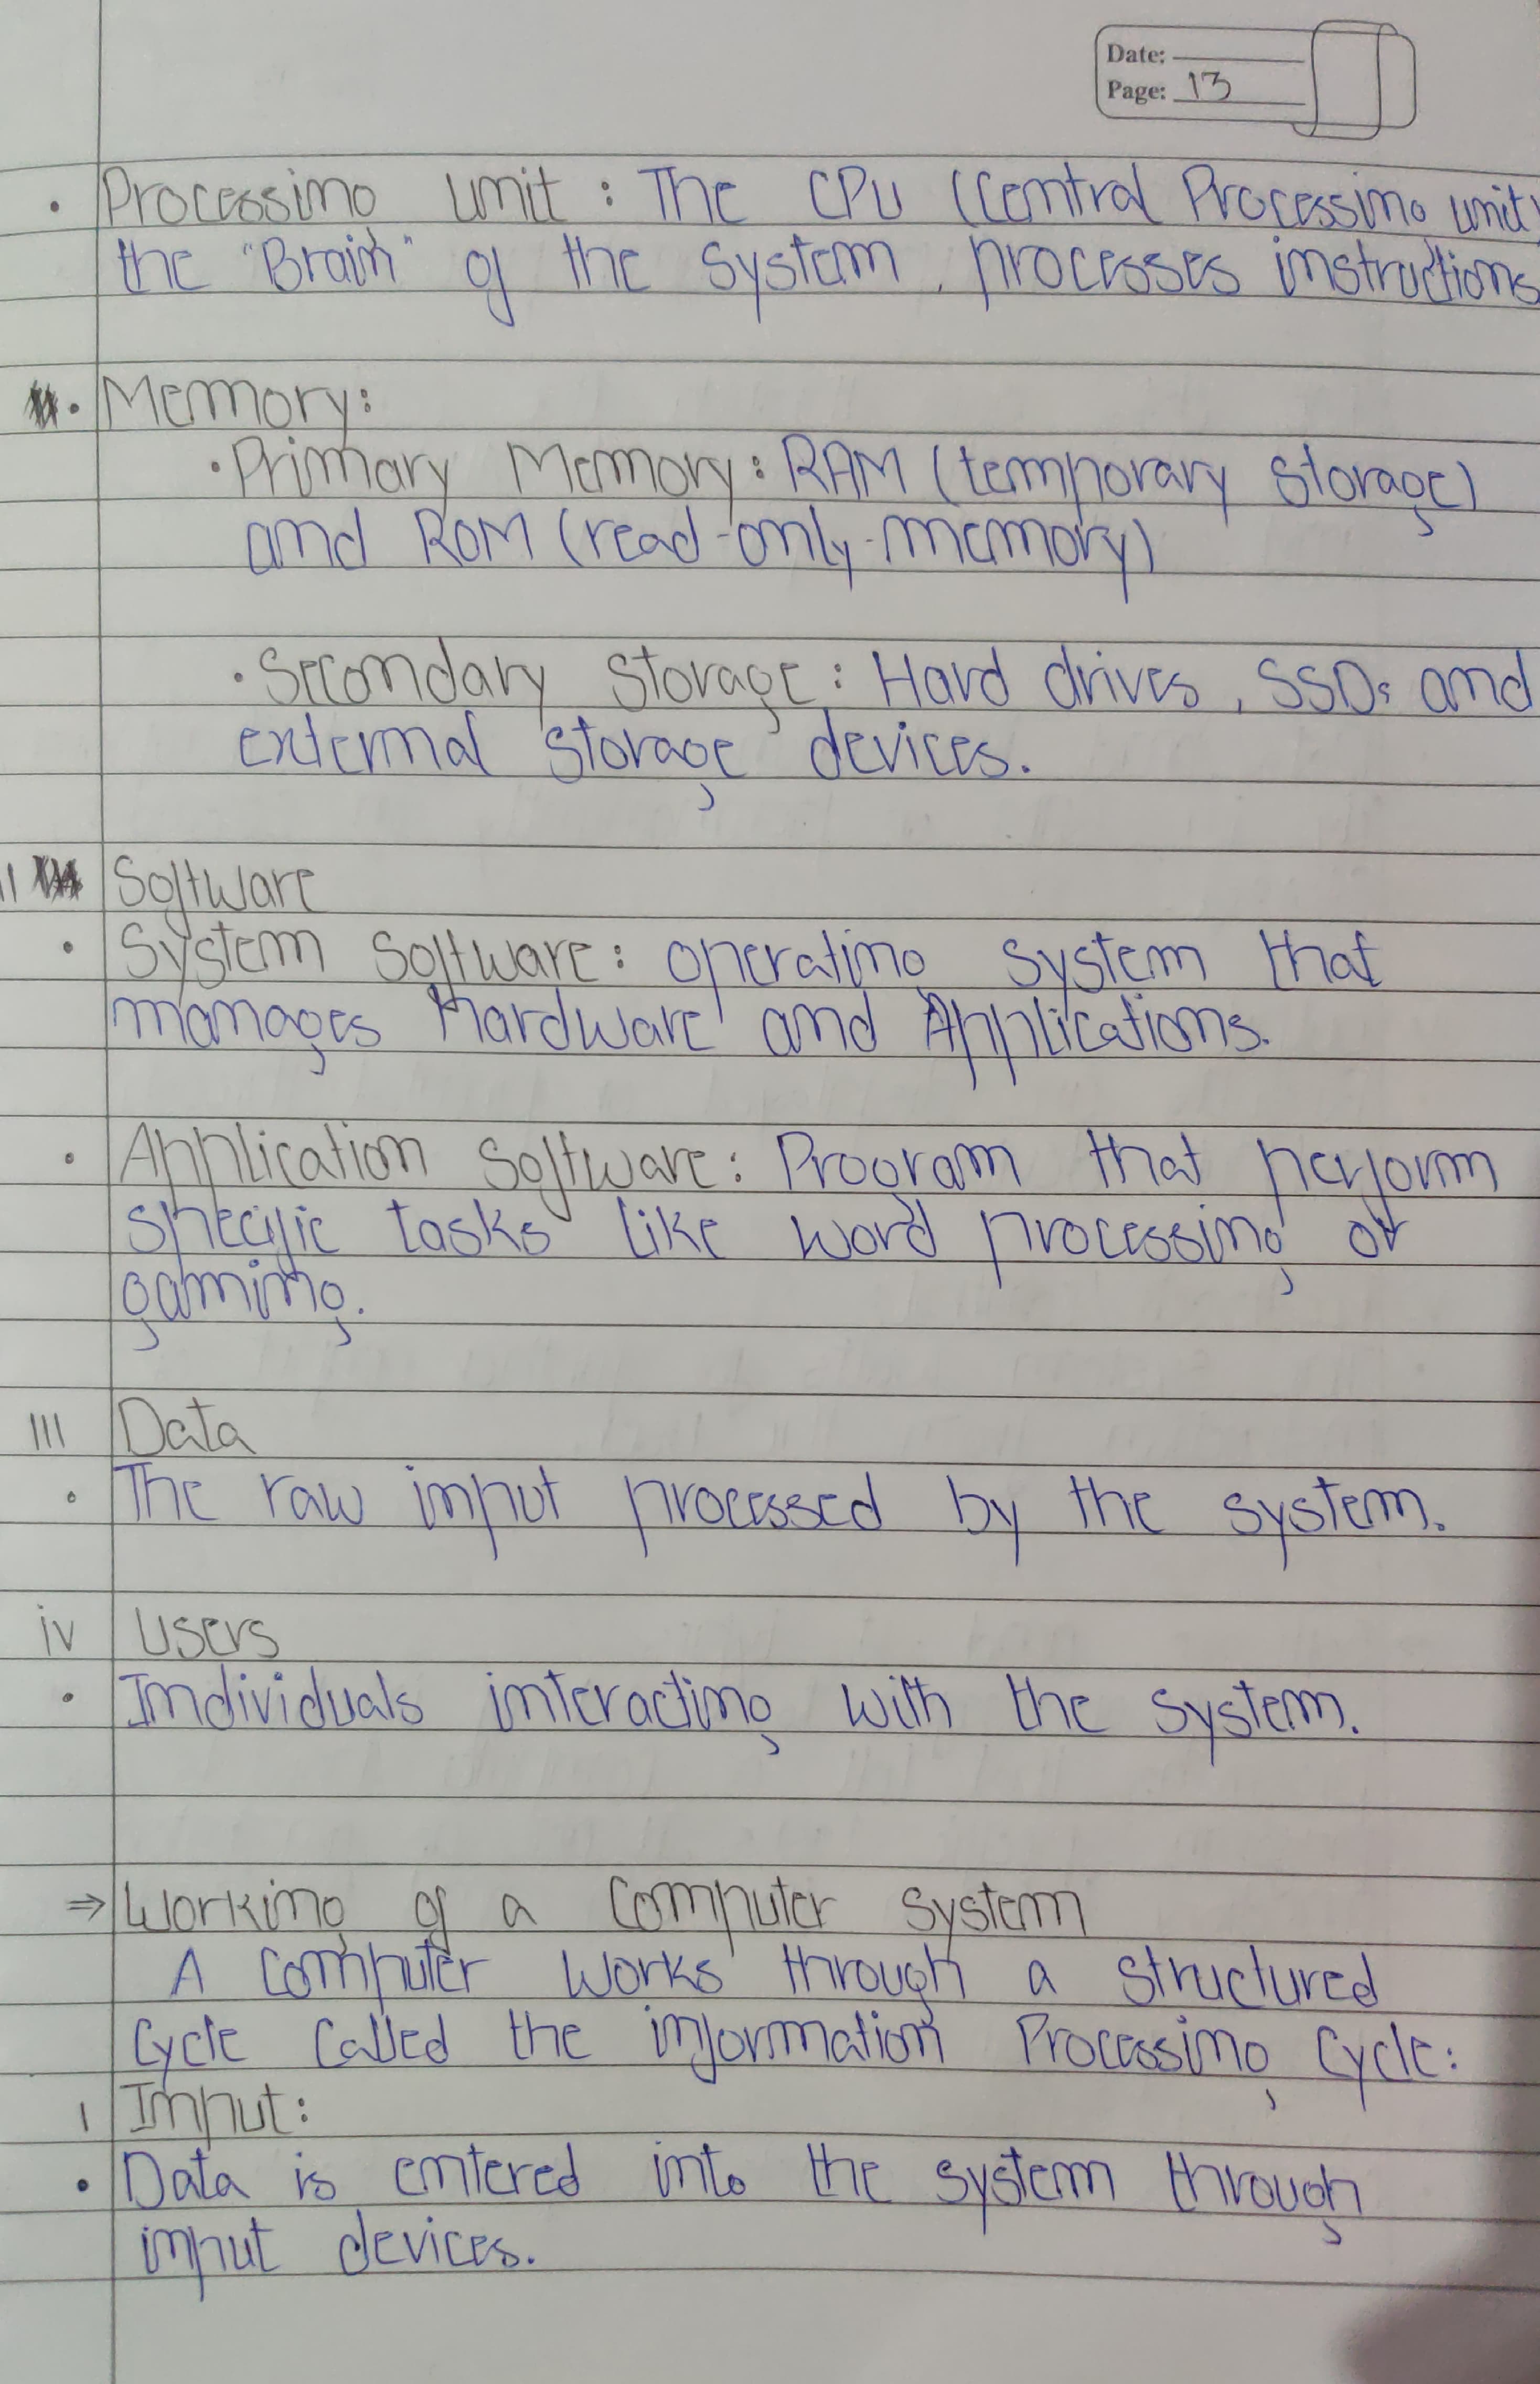 Date:
Page: 13
• Processing unit : The CPU (Central Processing unit)
the "Brain" of the system, processes instructions
• Memory:
• Primary Memory: RAM (temporary storage)
and ROM (read-only-memory)
• Secondary storage: Hard drives, SSDs and
external storage devices.
II Software
• System software: operating system that
manages Hardware and Applications.
• Application software: Program that perform
specific tasks like word processing or
gaming.
III Data
• The raw input processed by the system.
iv Users
• Individuals interacting with the system.
⇒ Working of a Computer system
A Computer works through a structured
Cycle Called the information Processing Cycle:
I Input:
• Data is entered into the system through
input devices.